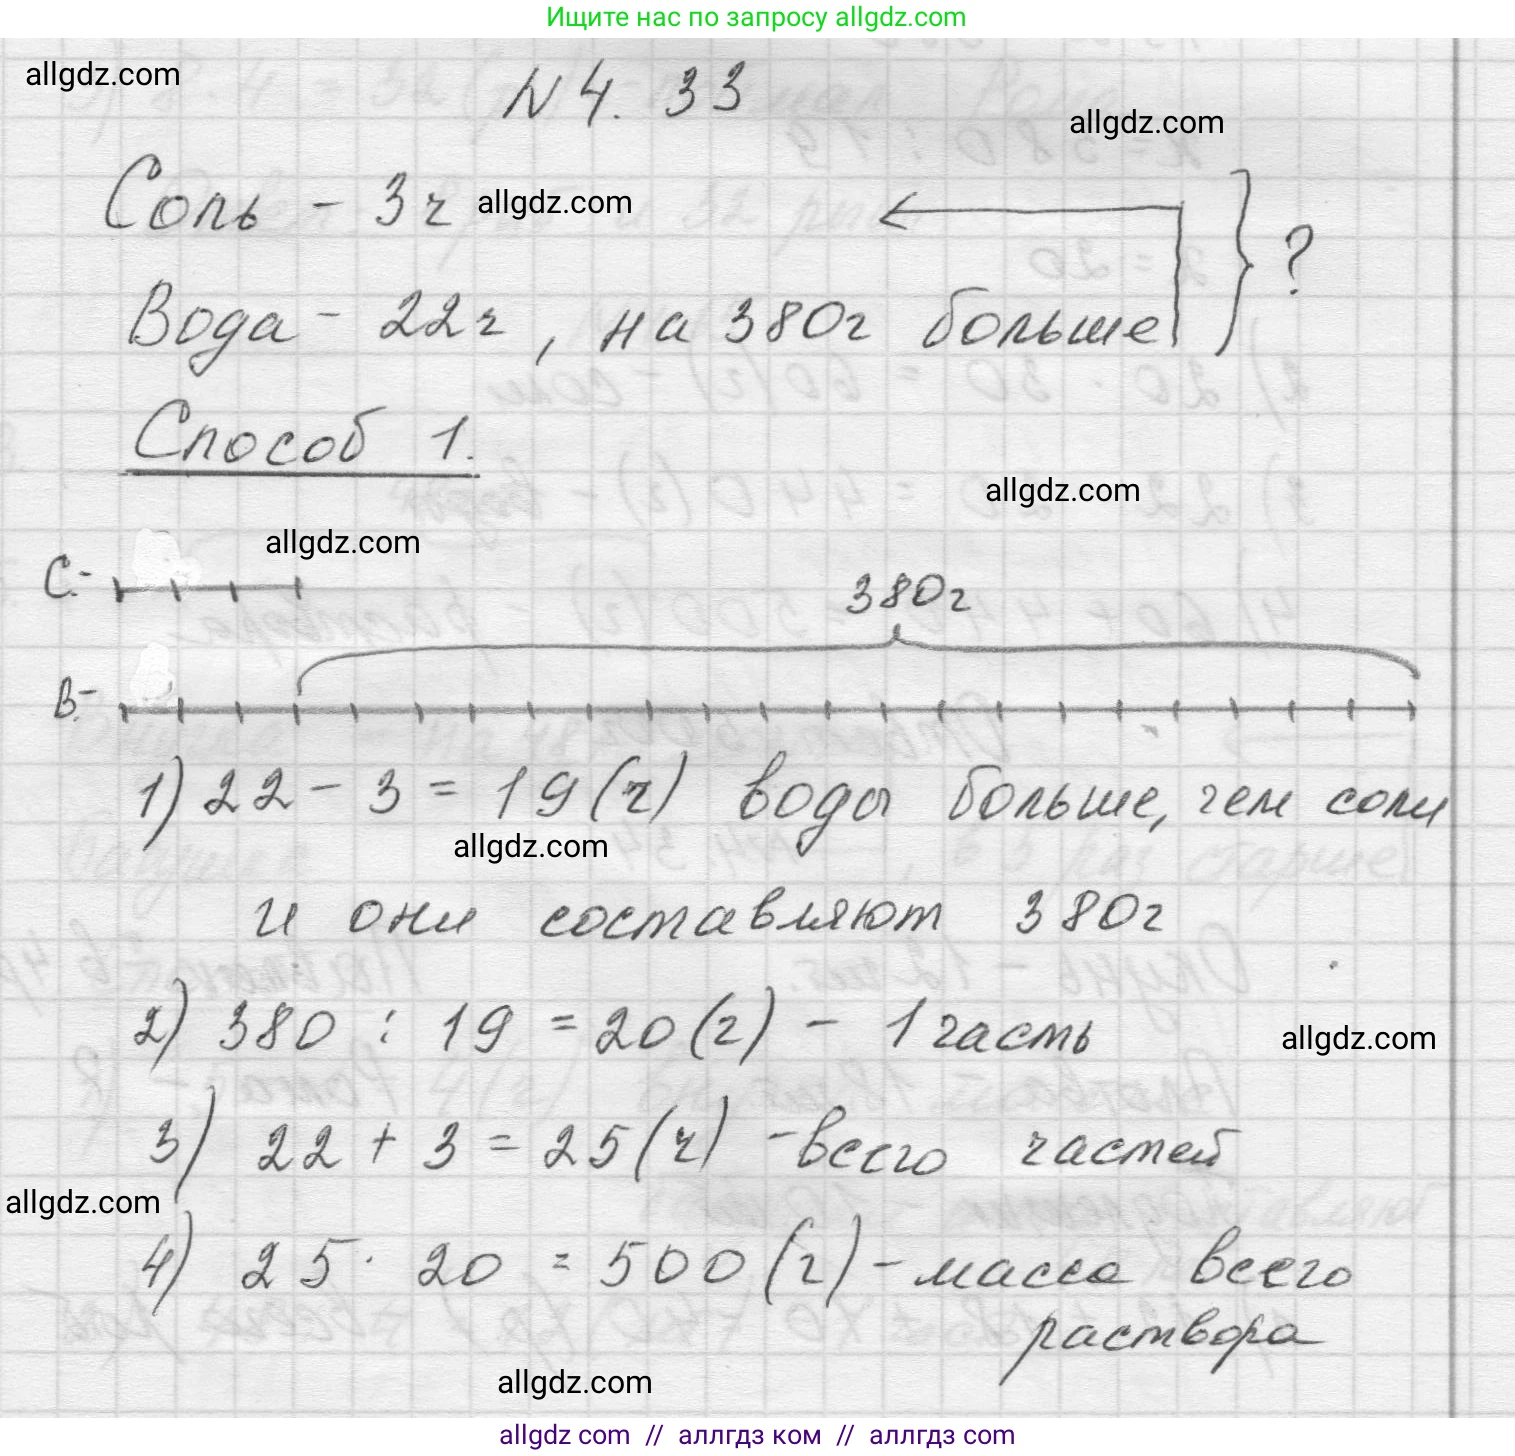 Ищите нас по запросу allgdz.com
allgdz.com
N 4. 33
allgdz.com
Соль - 3ч allgdz.com
?
Вода - 22ч, на 380г больше
Способ 1.
allgdz.com
allgdz.com
С.-
380г
В.-
1) 22 - 3 = 19 (ч) воды больше, чем соли
allgdz.com
и они составляют 380г
2) 380 : 19 = 20 (г) - 1 часть
allgdz.com
3) 22 + 3 = 25 (ч) - всего частей
allgdz.com
4) 25 · 20 = 500 (г) - масса всего
раствора
allgdz.com
allgdz com // аллгдз ком // allgdz com